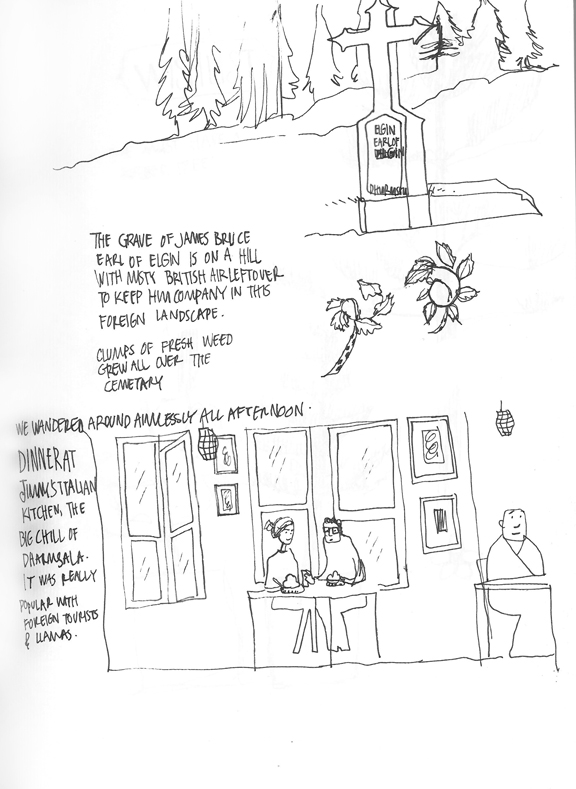 ELGIN
EARL OF
DHARMSALA
THE GRAVE OF JAMES BRUCE
EARL OF ELGIN IS ON A HILL
WITH MISTY BRITISH AIR LEFTOVER
TO KEEP HIM COMPANY IN THIS
FOREIGN LANDSCAPE.
CLUMPS OF FRESH WEED
GREW ALL OVER THE
CEMETARY
WE WANDERED AROUND AIMLESSLY ALL AFTERNOON.
DINNER AT
JIMMY'S ITALIAN
KITCHEN, THE
BIG CHILL OF
DHARMSALA.
IT WAS REALLY
POPULAR WITH
FOREIGN TOURISTS
& LLAMAS.